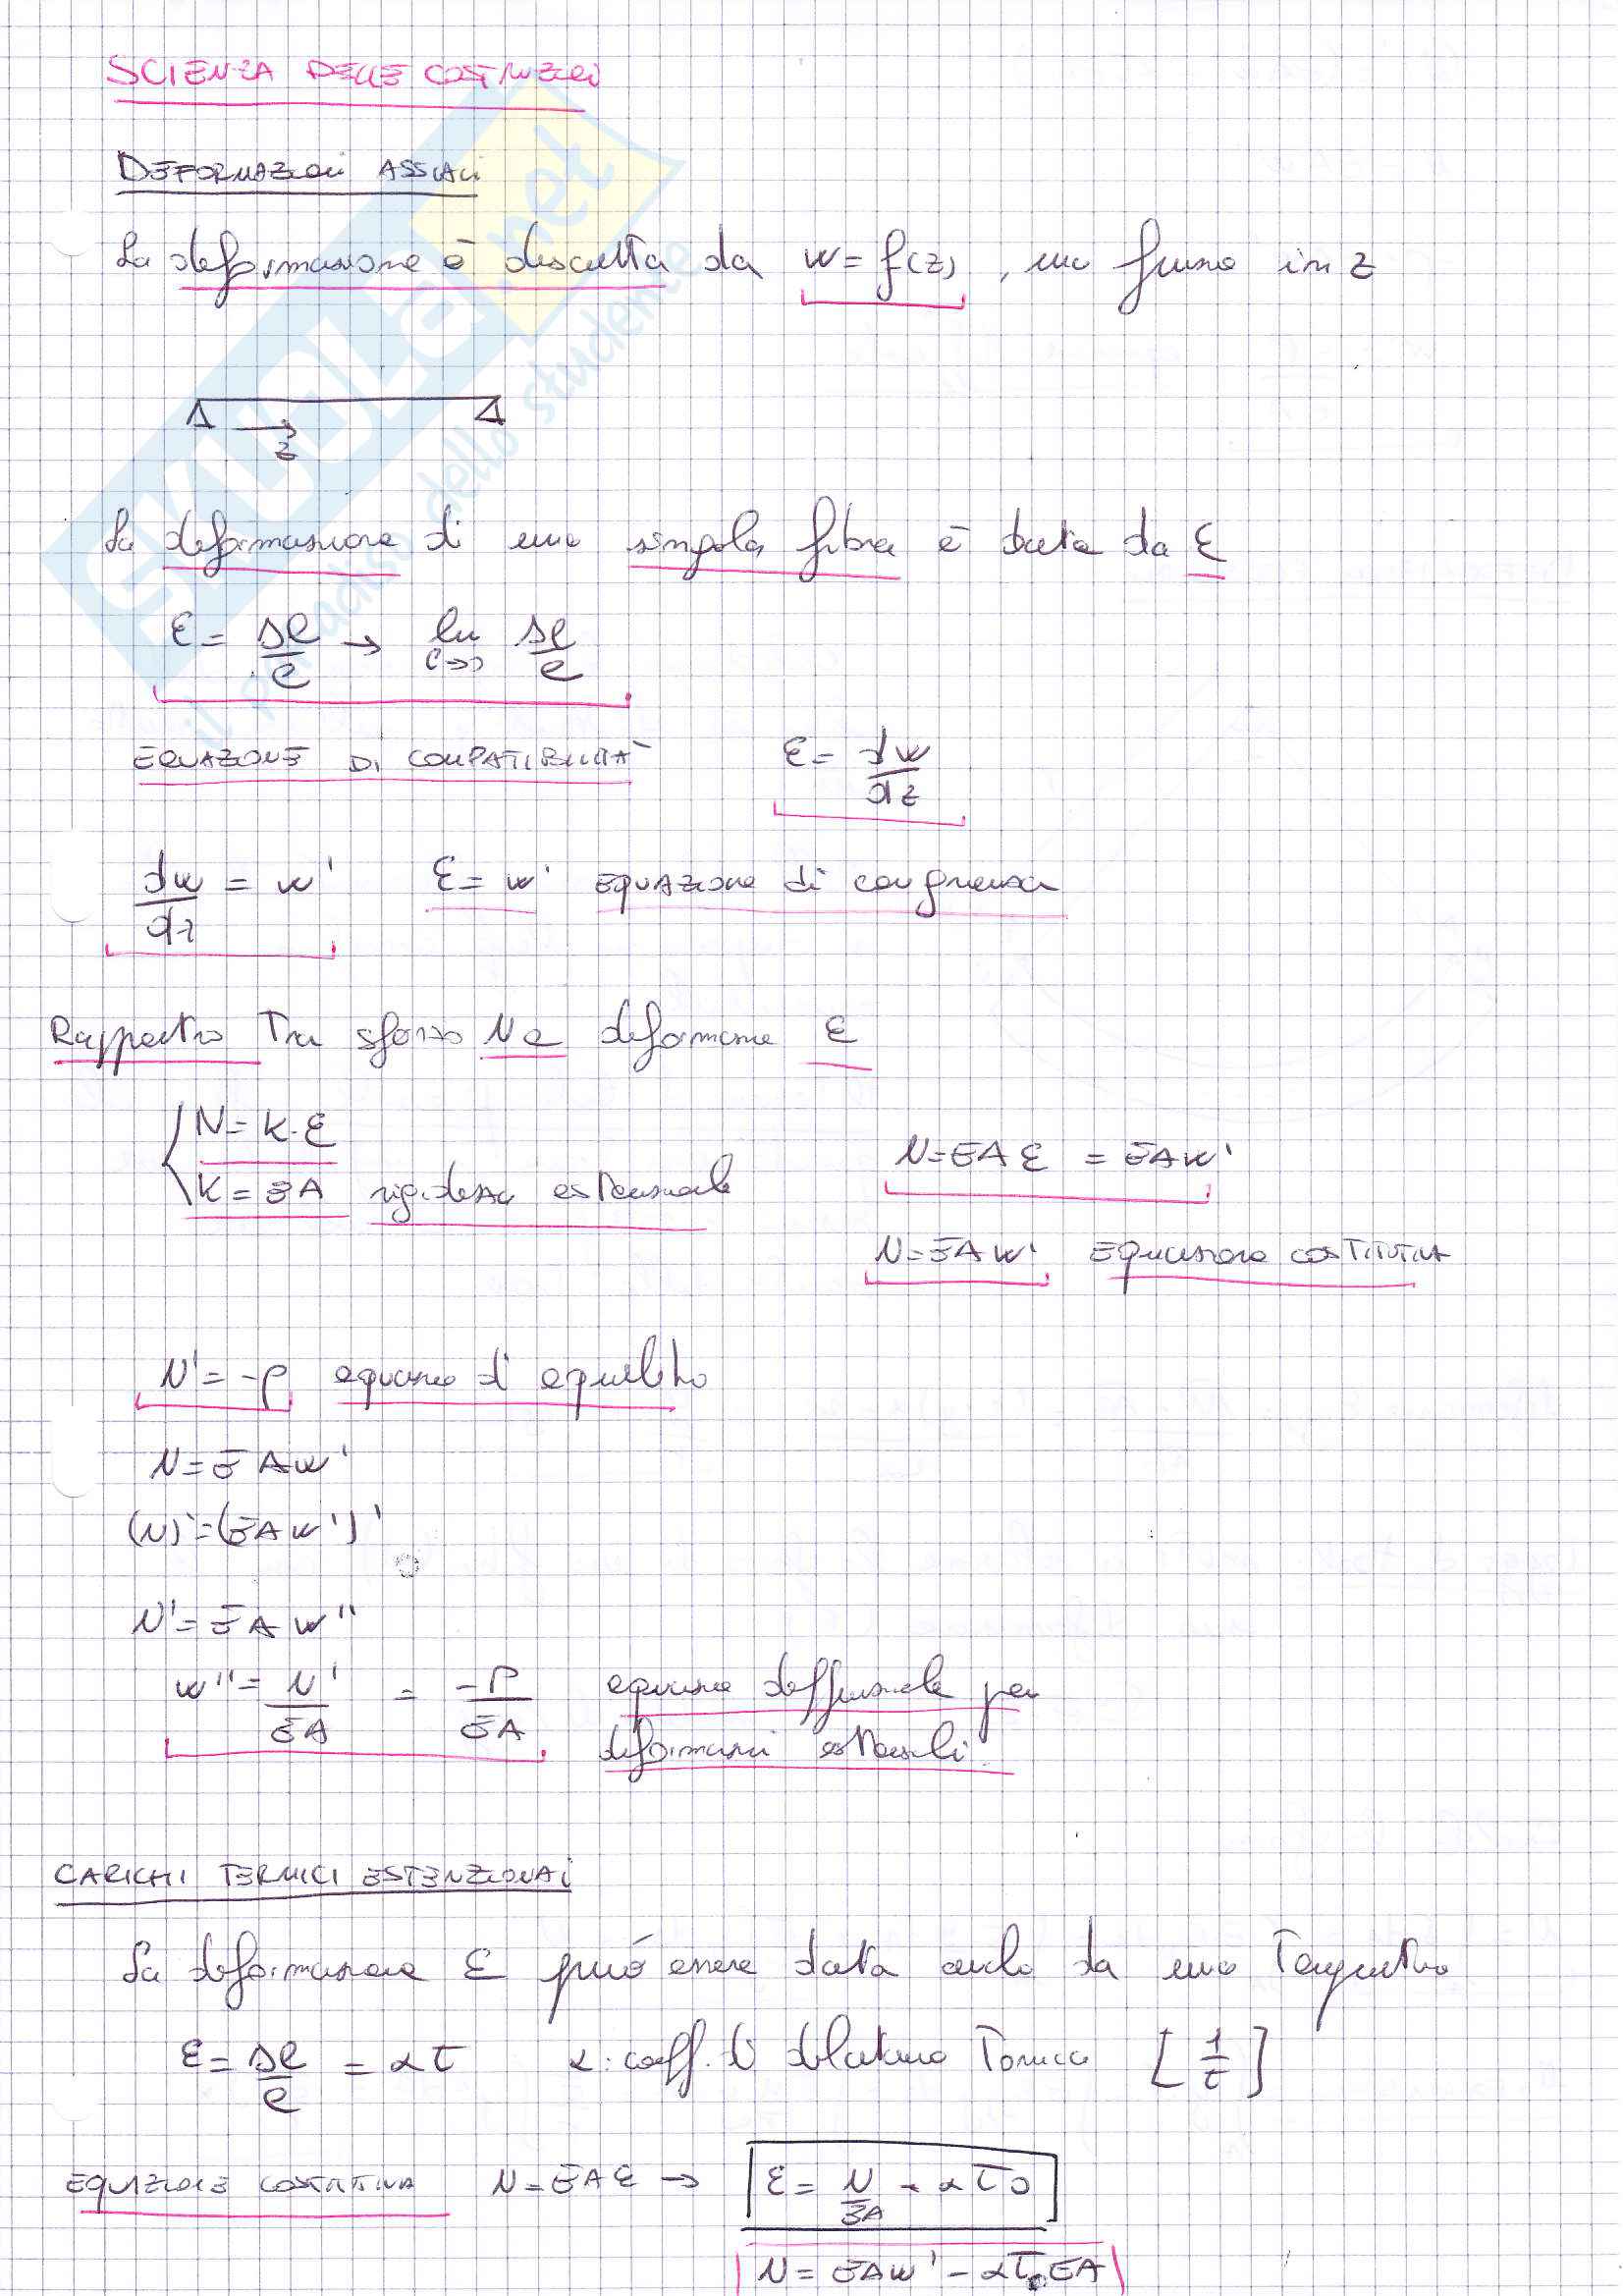 SCIENZA DELLE COSTRUZIONI
DEFORMAZIONI ASSIALI
La deformazione è descritta da w = f(z), una funzione in z
z
La deformazione di una singola fibra è data da ε
ε = Δl/l → lim l→0 Δl/l
EQUAZIONE DI COMPATIBILITÀ ε = dw/dz
dw/dz = w' ε = w' EQUAZIONE di congruenza
Rapporto Tra sforzo N e deformazione ε
N = K·ε
K = EA rigidezza estensionale
N = EAε = EAw'
N = EAw' EQUAZIONE COSTITUTIVA
N' = -p equazione di equilibrio
N = EAw'
(N)' = (EAw')'
N' = EAw''
w'' = N'/EA = -p/EA equazione differenziale per
deformazioni estensionali
CARICHI TERMICI ESTENZIONALI
La deformazione ε può essere data anche da una Temperatura
ε = Δl/l = αT α: coeff. di dilatazione Termica [1/t]
EQUAZIONE COSTITUTIVA N = EAε → ε = N/EA + αT0
N = EAw' - αT0EA
SKUOLA.net
il paradiso dello studente